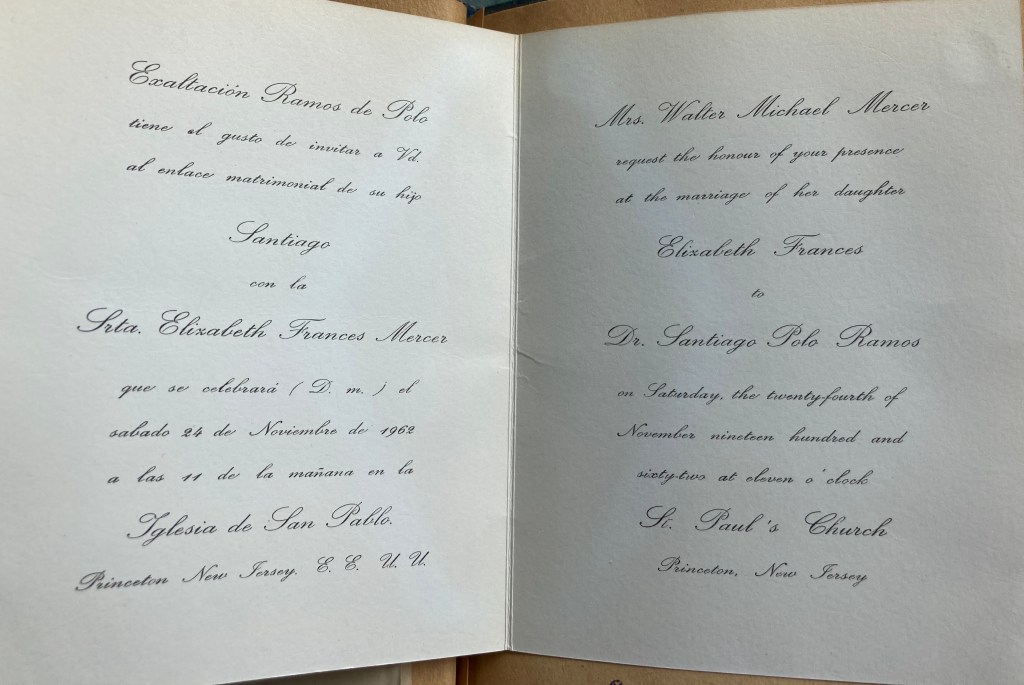 Exaltación Ramos de Polo
tiene el gusto de invitar a Vd.
al enlace matrimonial de su hijo
Santiago
con la
Srta. Elizabeth Frances Mercer
que se celebrará ( D. m. ) el
sabado 24 de Noviembre de 1962
a las 11 de la mañana en la
Iglesia de San Pablo.
Princeton New Jersey. E. E. U. U.
Mrs. Walter Michael Mercer
request the honour of your presence
at the marriage of her daughter
Elizabeth Frances
to
Dr. Santiago Polo Ramos
on Saturday, the twenty-fourth of
November nineteen hundred and
sixty-two at eleven o'clock
St. Paul's Church
Princeton, New Jersey